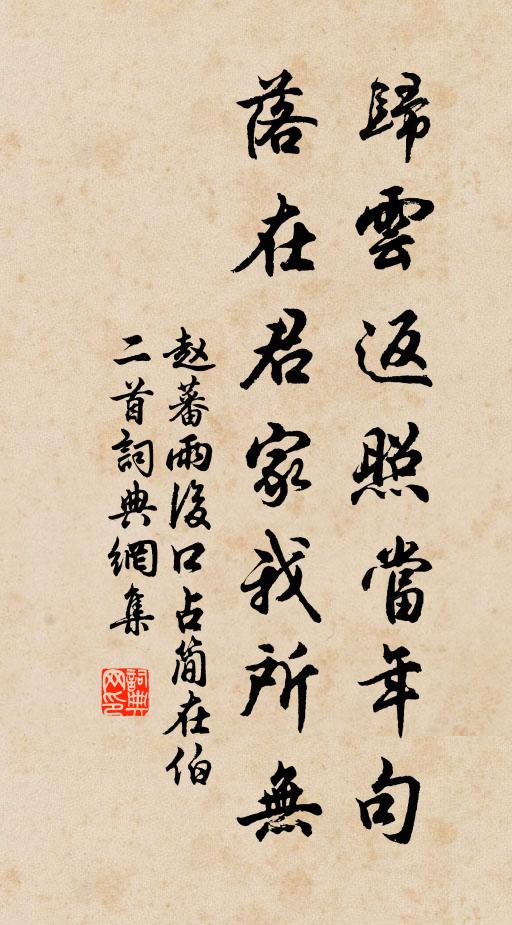 歸雲返照當年句
落在君家我所無
赵蕃雨後口占簡在伯
二首詞典網集
詞典网印